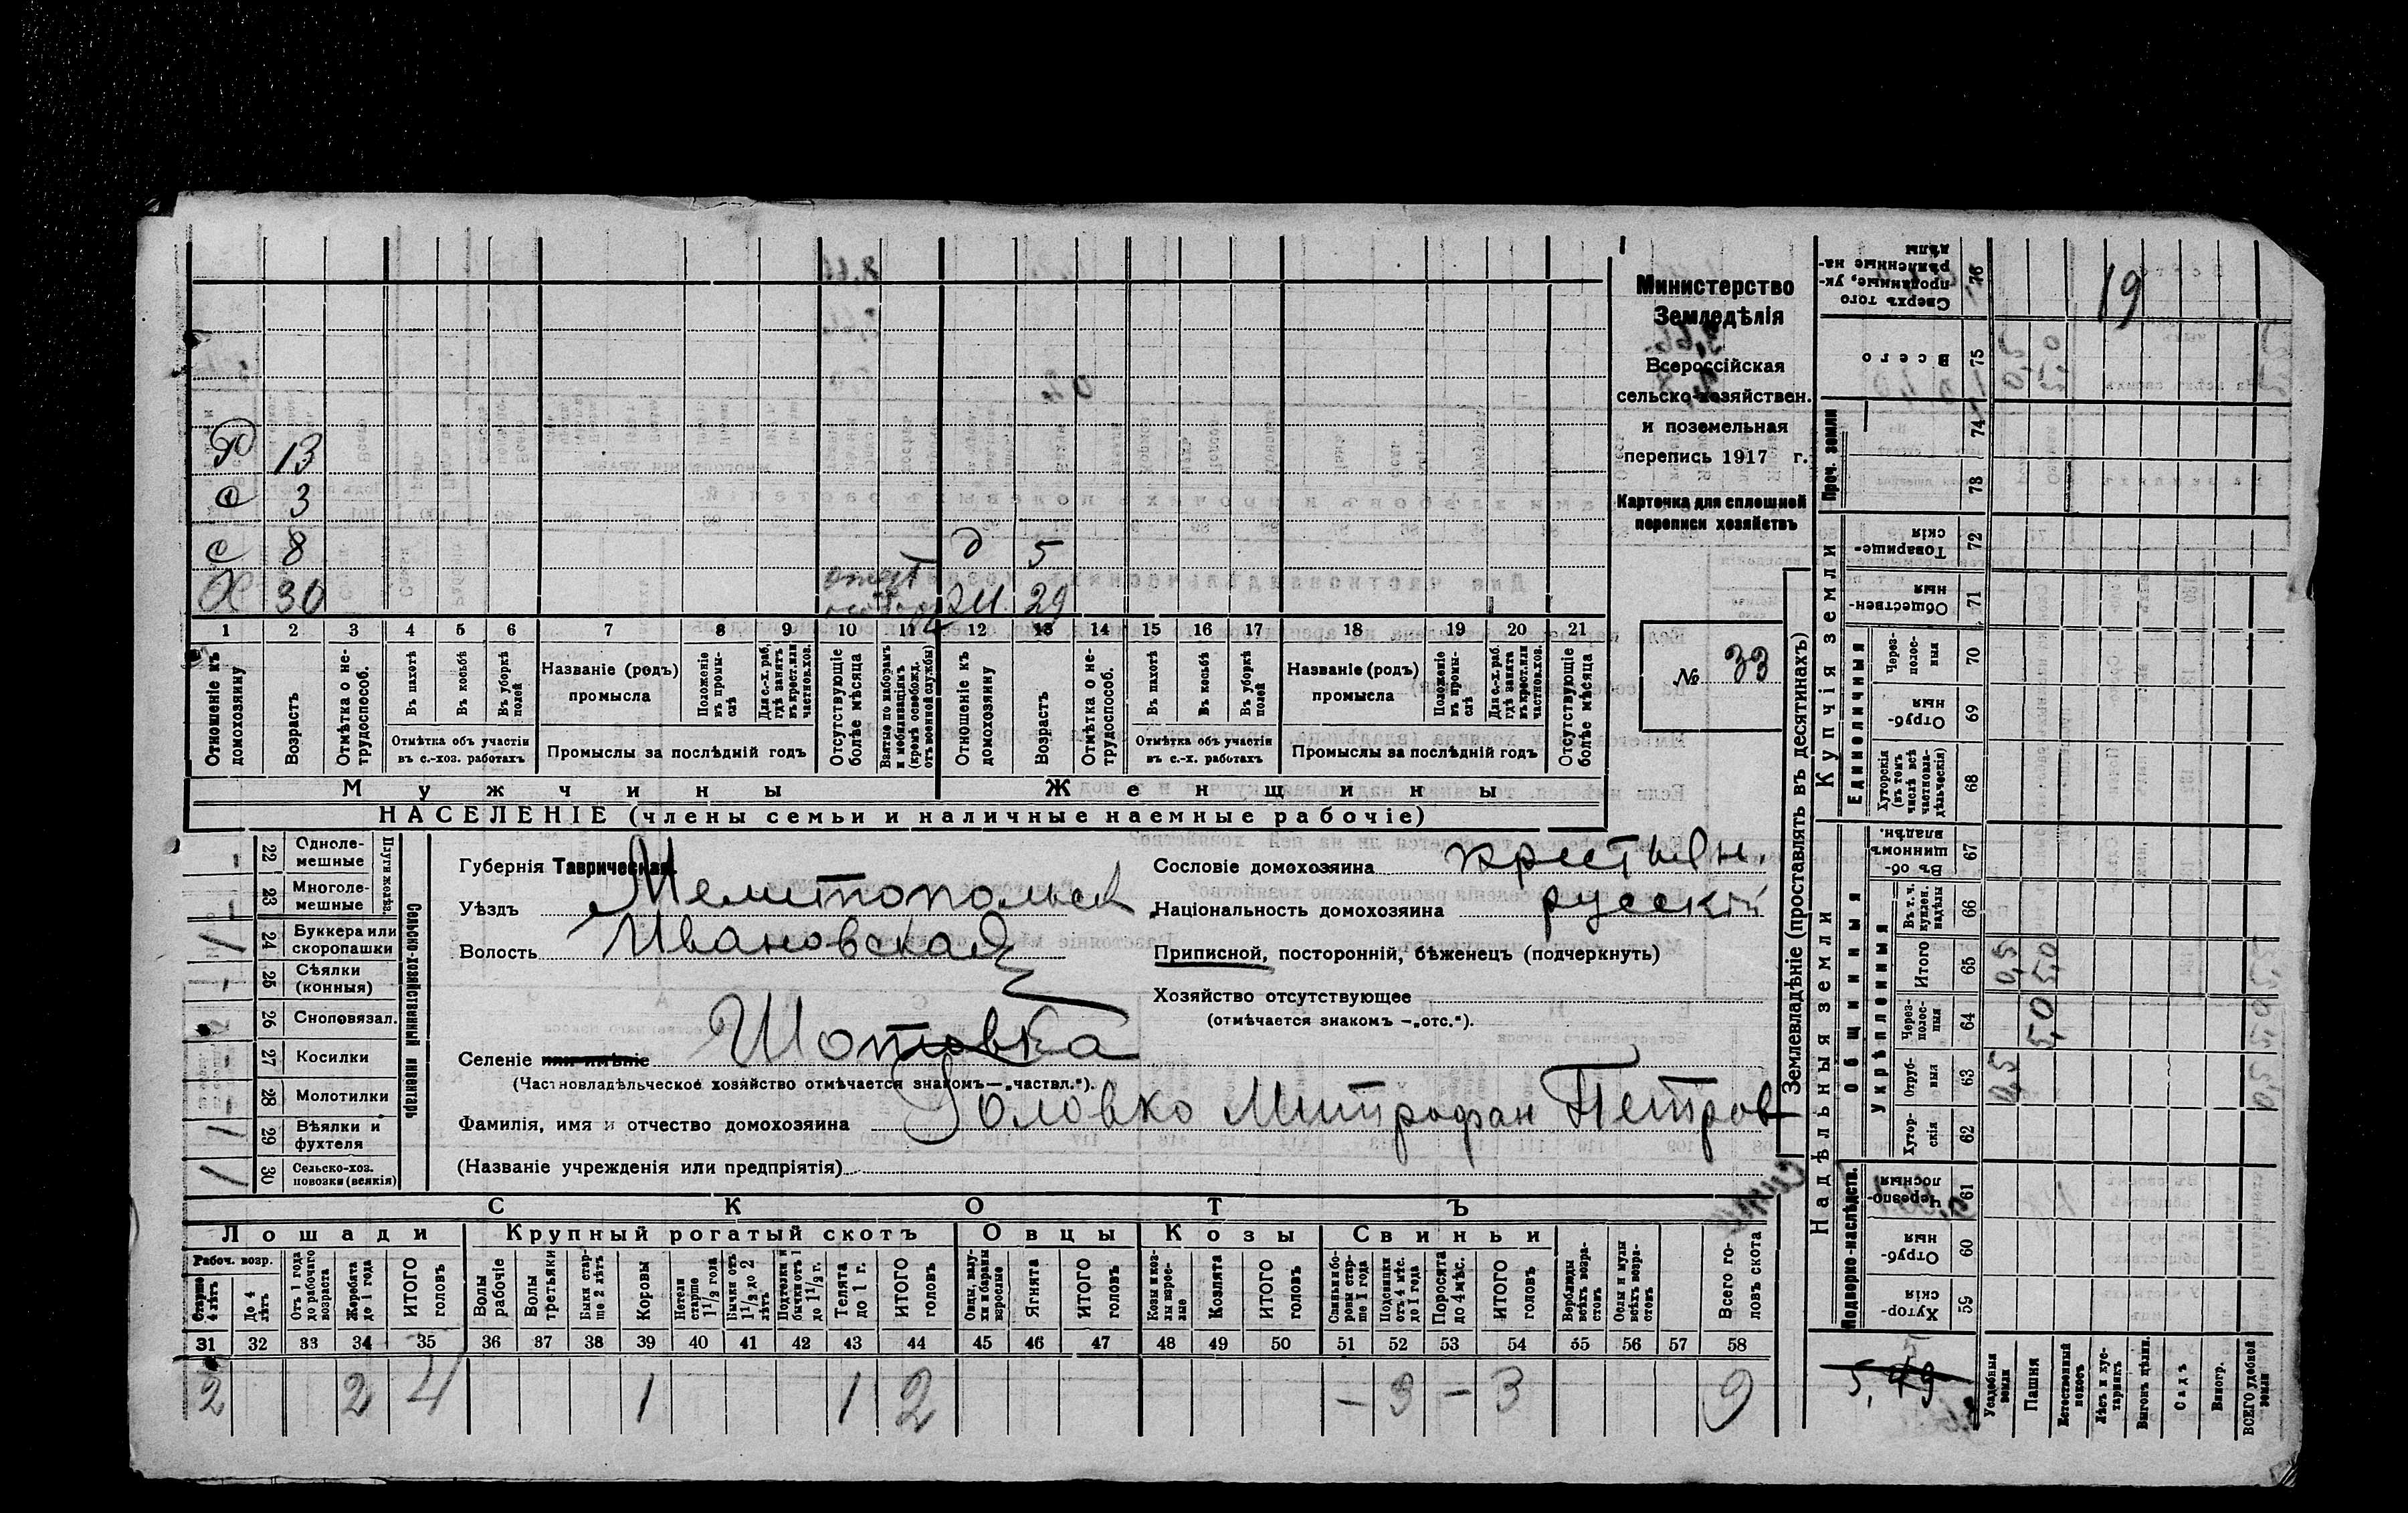 Министерство
Земледѣлія
Всероссійская
сельско-хозяйствен.
и поземельная
перепись 1917 г.
Карточка для сплошной
переписи хозяйствъ
№ 33
13
с 3
с 8 д 5
Х 30 29
1 2 3 4 5 6 7 8 9 10 11 12 13 14 15 16 17 18 19 20 21
Отношеніе къ домохозяину
Возрастъ
Отмѣтка о нетрудоспособ.
Въ пахотѣ
Въ косьбѣ
Въ уборкѣ полей
Отмѣтка объ участіи въ с.-хоз. работахъ
Названіе (родъ) промысла
Положеніе въ промыслѣ
Для с.-х. раб. гдѣ занятъ въ крест. или частнов. хоз.
Промыслы за послѣдній годъ
Отсутствующіе болѣе мѣсяца
Взятые по наборамъ и мобилизаціямъ (кромѣ освобожд. отъ военной службы)
Отношеніе къ домохозяину
Возрастъ
Отмѣтка о нетрудоспособ.
Въ пахотѣ
Въ косьбѣ
Въ уборкѣ полей
Отмѣтка объ участіи въ с.-х. работахъ
Названіе (родъ) промысла
Положеніе въ промыслѣ
Для с.-х. раб. гдѣ занята въ крест. или частнов. хоз.
Промыслы за послѣдній годъ
Отсутствующіе болѣе мѣсяца
Мужчины Женщины
НАСЕЛЕНІЕ (члены семьи и наличные наемные рабочіе)
Сельско-хозяйственный инвентарь
Плуги желѣз.
22 Однолемешные -
23 Многолемешные -
24 Буккера или скоропашки 1
25 Сѣялки (конныя) -
26 Сноповязал.
27 Косилки -
28 Молотилки -
29 Вѣялки и фухтеля 1
30 Сельско-хоз. повозки (всякія) 1
Губернія Таврическая.
Уѣздъ Мелитопольск
Волость Ивановская
Селеніе или имѣніе Шотовка
(Частновладѣльческое хозяйство отмѣчается знакомъ—„частвл.").
Фамилія, имя и отчество домохозяина Головко Митрофан Петров
(Названіе учрежденія или предпріятія)
Сословіе домохозяина крестьян.
Національность домохозяина русскій
Приписной, посторонній, бѣженецъ (подчеркнуть)
Хозяйство отсутствующее
(отмѣчается знакомъ —„отс.").
СКОТЪ
Лошади Крупный рогатый скотъ Овцы Козы Свиньи
Рабоч. возр.
Старше 4 лѣтъ
До 4 лѣтъ
Отъ 1 года до рабочаго возраста
Жеребята до 1 года
ИТОГО головъ
Волы рабочіе
Волы третьяки
Быки старше 2 лѣтъ
Коровы
Нетели старше 1½ года
Бычки отъ 1½ до 2 лѣтъ
Подтелки и бычки отъ 1 до 1½ г.
Телята до 1 г.
ИТОГО головъ
Овцы, валухи и бараны взрослые
Ягнята
ИТОГО головъ
Козы и козлы взрослые
Козлята
ИТОГО головъ
Свиньи и боровы старше 1 года
Подсвинки отъ 4 мѣс. до 1 года
Поросята до 4 мѣс.
ИТОГО головъ
Верблюды всѣхъ возрастовъ
Ослы и мулы всѣхъ возрастовъ
Всего головъ скота
31 32 33 34 35 36 37 38 39 40 41 42 43 44 45 46 47 48 49 50 51 52 53 54 55 56 57 58
2 2 4 1 1 2 - 3 - 3 9
Землевладѣніе (проставлять въ десятинахъ)
Надѣльныя земли
Купчія земли
Проч. земли
Подворно-наслѣдств.
Общинныя
Укрѣпленныя
Единоличныя
Сверхъ того проданные, укрѣпленные надѣлы 76
Всего 75 0,5 5,0
74
73
Товарищескія 72
Общественныя 71
Черезполосныя 70
Отрубныя 69
Хуторскія (въ томъ числѣ всѣ частновладѣльческія) 68
Въ общинномъ владѣн. 67
Въ т. ч. куплен. надѣлы 66
Итого 65 0,5 5,0
Черезполосныя 64 5,0
Отрубныя 63 0,5
Хуторскія 62
Черезполосныя 61
Отрубныя 60
Хуторскія 59
Усадебныя земли
Пашня
Естественный покосъ
Лѣсъ и кустарникъ
Выгонъ цѣлин.
Садъ
Виногр.
ВСЕГО удобной земли
19